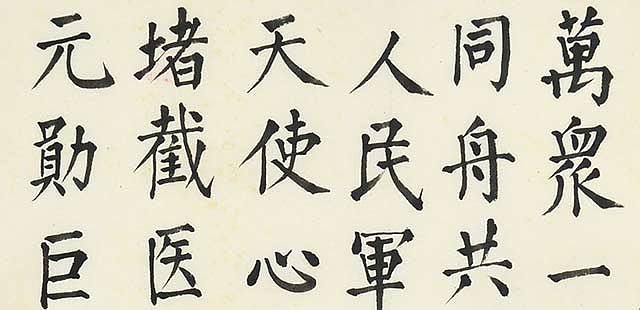 萬眾一
同舟共
人民軍
天使心
堵截医
元勛巨